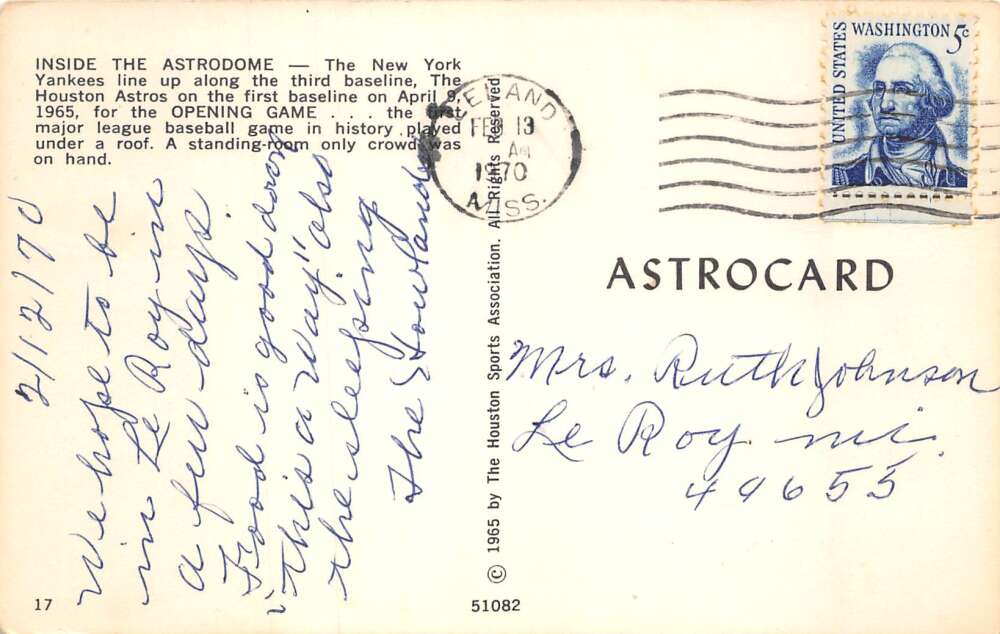 INSIDE THE ASTRODOME — The New York
Yankees line up along the third baseline, The
Houston Astros on the first baseline on April 9,
1965, for the OPENING GAME . . . the first
major league baseball game in history played
under a roof. A standing-room only crowd was
on hand.
2/12/70
We hope to be
in Le Roy in
a few days.
Food is good down
"this a way" also
the sleeping
The Howlands
17
© 1965 by The Houston Sports Association. All Rights Reserved
51082
CLEVELAND
FEB 13
AM
1970
MISS.
UNITED STATES
WASHINGTON 5c
ASTROCARD
Mrs. Ruth Johnson
Le Roy mi.
49655